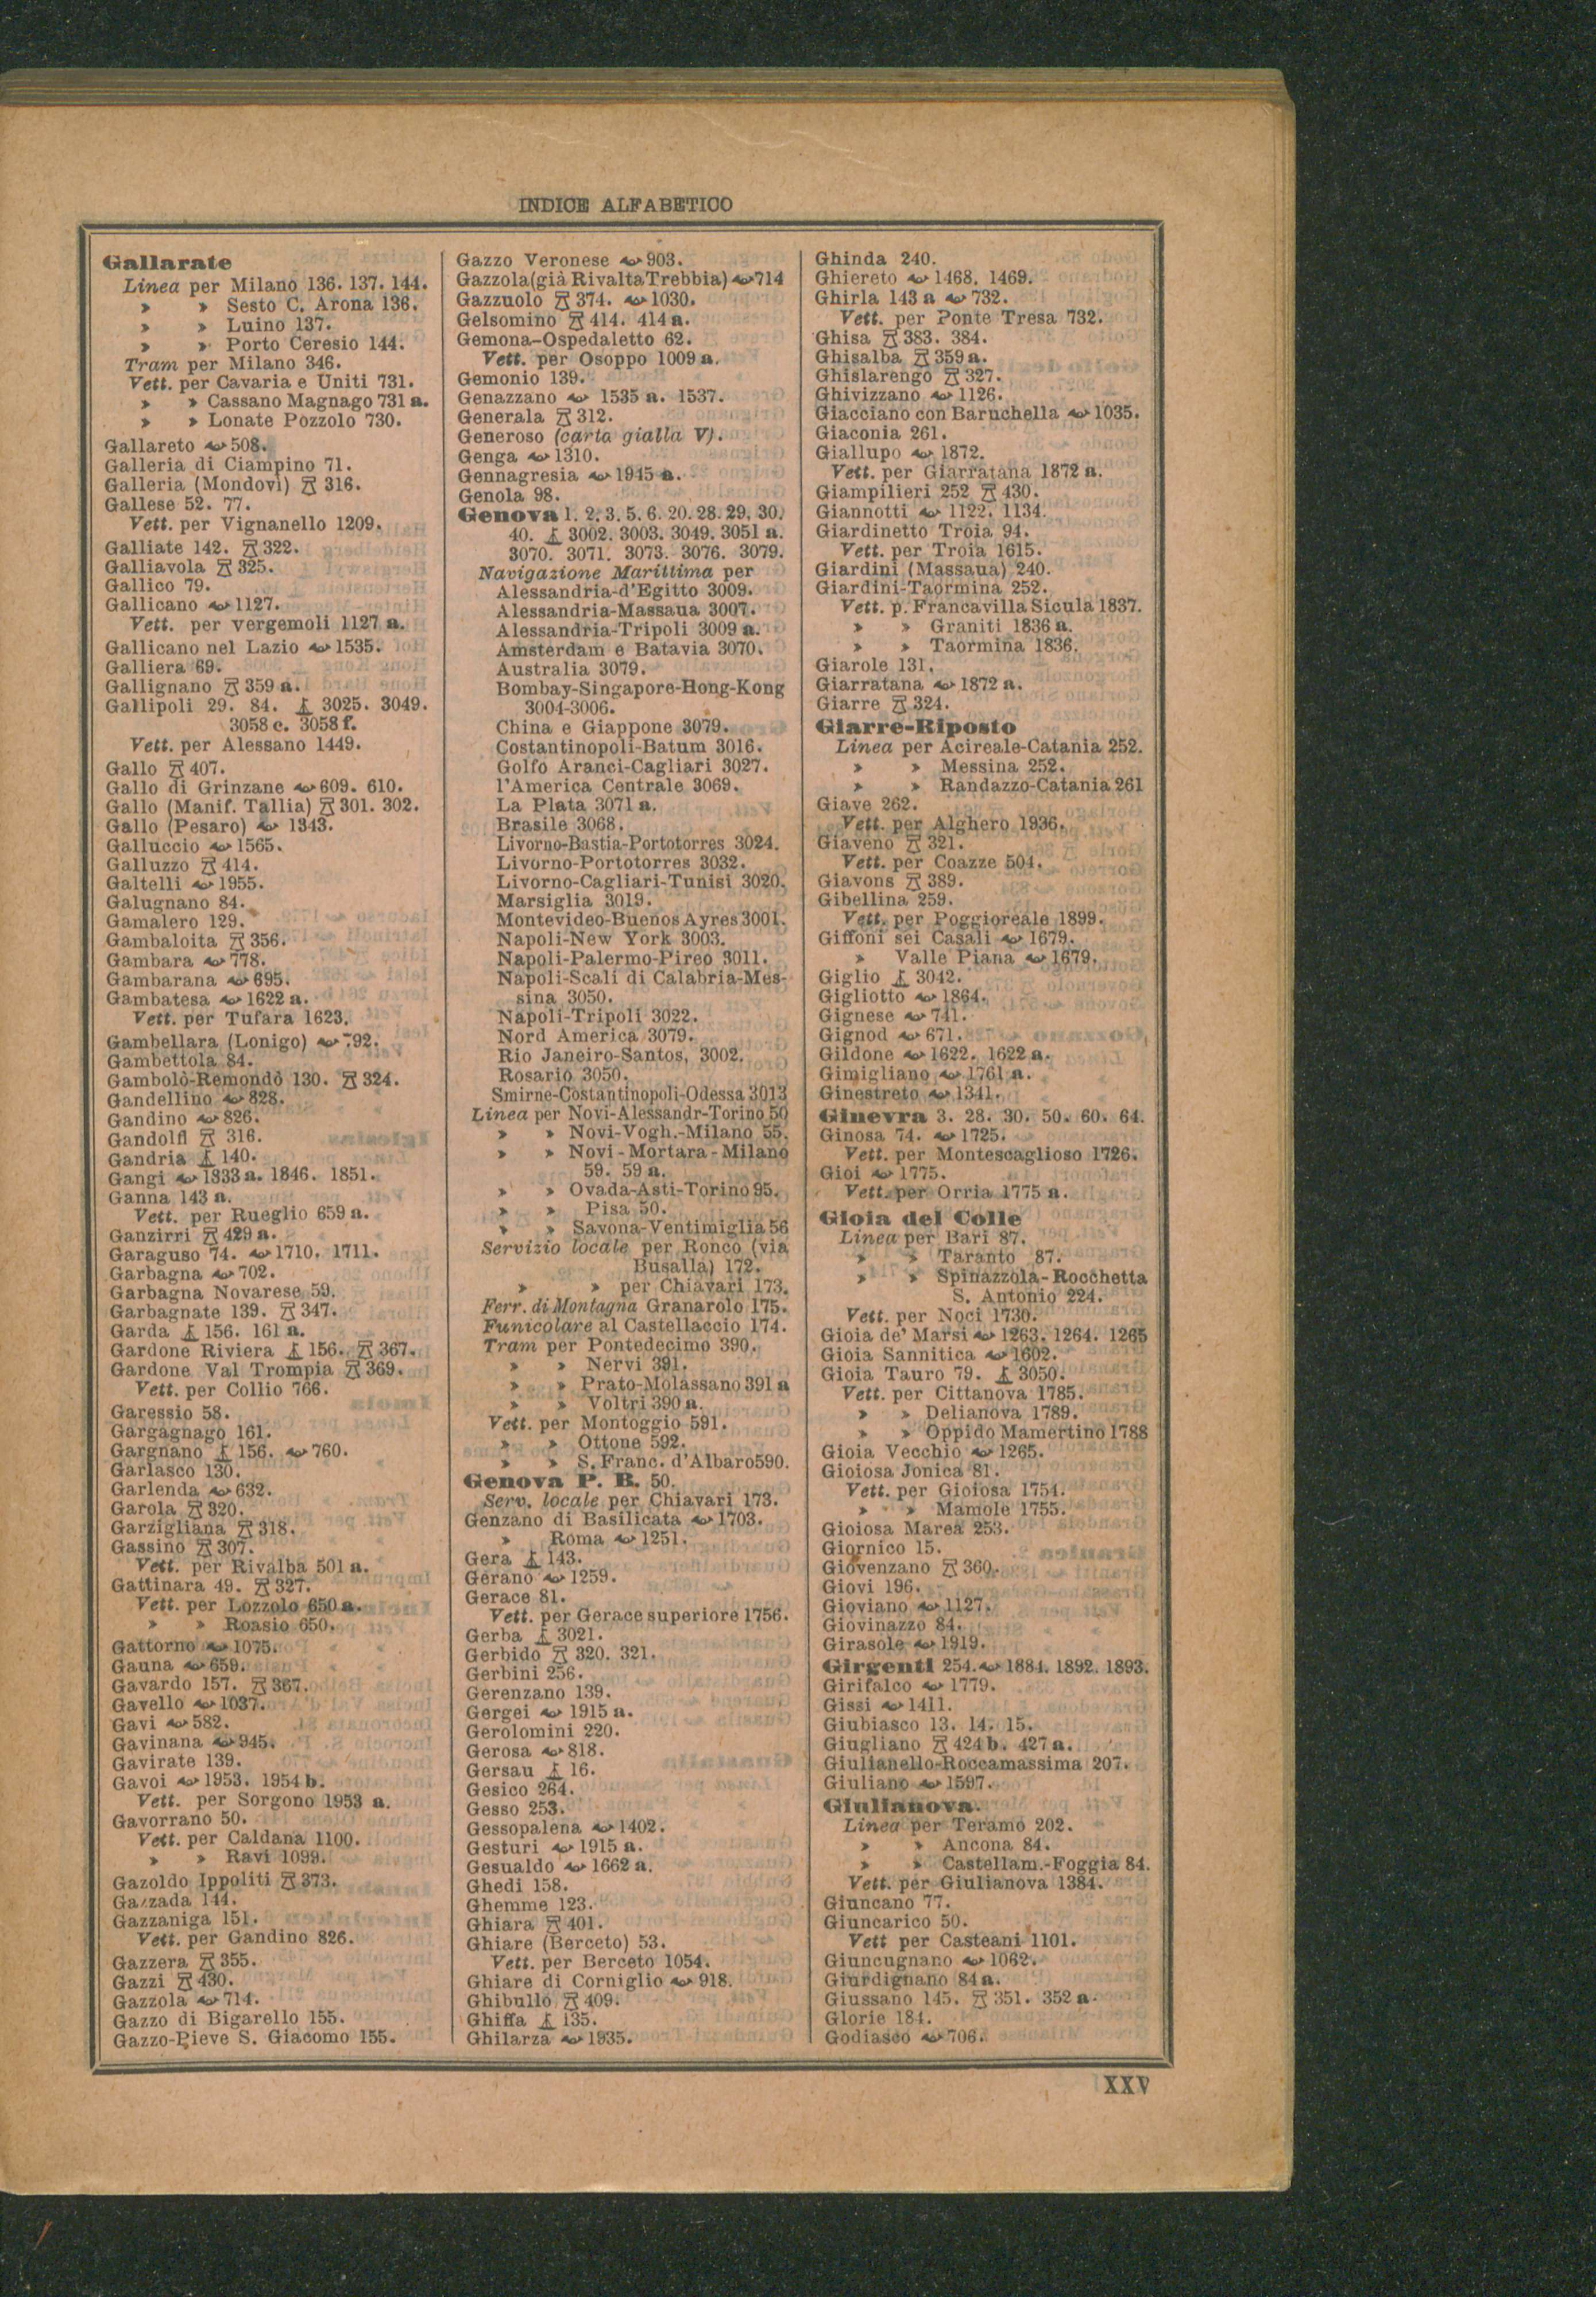 INDICE ALFABETICO
Gallarate
Linea per Milano 136. 137. 144.
» » Sesto C. Arona 136.
» » Luino 137.
» » Porto Ceresio 144.
Tram per Milano 346.
Vett. per Cavaria e Uniti 731.
» » Cassano Magnago 731 a.
» » Lonate Pozzolo 730.
Gallareto 508.
Galleria di Ciampino 71.
Galleria (Mondovì) 316.
Gallese 52. 77.
Vett. per Vignanello 1209.
Galliate 142. 322.
Galliavola 325.
Gallico 79.
Gallicano 1127.
Vett. per vergemoli 1127 a.
Gallicano nel Lazio 1535.
Galliera 69.
Gallignano 359 a.
Gallipoli 29. 84. 3025. 3049.
3058 c. 3058 f.
Vett. per Alessano 1449.
Gallo 407.
Gallo di Grinzane 609. 610.
Gallo (Manif. Tallia) 301. 302.
Gallo (Pesaro) 1343.
Galluccio 1565.
Galluzzo 414.
Galtelli 1955.
Galugnano 84.
Gamalero 129.
Gambaloita 356.
Gambara 778.
Gambarana 695.
Gambatesa 1622 a.
Vett. per Tufara 1623.
Gambellara (Lonigo) 792.
Gambettola 84.
Gambolò-Remondò 130. 324.
Gandellino 828.
Gandino 826.
Gandolfi 316.
Gandria 140.
Gangi 1833 a. 1846. 1851.
Ganna 143 a.
Vett. per Rueglio 659 a.
Ganzirri 429 a.
Garaguso 74. 1710. 1711.
Garbagna 702.
Garbagna Novarese 59.
Garbagnate 139. 347.
Garda 156. 161 a.
Gardone Riviera 156. 367.
Gardone Val Trompia 369.
Vett. per Collio 766.
Garessio 58.
Gargagnago 161.
Gargnano 156. 760.
Garlasco 130.
Garlenda 632.
Garola 320.
Garzigliana 318.
Gassino 307.
Vett. per Rivalba 501 a.
Gattinara 49. 327.
Vett. per Lozzolo 650 a.
» » Roasio 650.
Gattorno 1075.
Gauna 659.
Gavardo 157. 367.
Gavello 1037.
Gavi 582.
Gavinana 945.
Gavirate 139.
Gavoi 1953. 1954 b.
Vett. per Sorgono 1953 a.
Gavorrano 50.
Vett. per Caldana 1100.
» » Ravi 1099.
Gazoldo Ippoliti 373.
Gazzada 144.
Gazzaniga 151.
Vett. per Gandino 826.
Gazzera 355.
Gazzi 430.
Gazzola 714.
Gazzo di Bigarello 155.
Gazzo-Pieve S. Giacomo 155.
Gazzo Veronese 903.
Gazzola(già RivaltaTrebbia) 714
Gazzuolo 374. 1030.
Gelsomino 414. 414 a.
Gemona-Ospedaletto 62.
Vett. per Osoppo 1009 a.
Gemonio 139.
Genazzano 1535 a. 1537.
Generala 312.
Generoso (carta gialla V).
Genga 1310.
Gennagresia 1945 a.
Genola 98.
Genova 1. 2. 3. 5. 6. 20. 28. 29. 30.
40. 3002. 3003. 3049. 3051 a.
3070. 3071. 3073. 3076. 3079.
Navigazione Marittima per
Alessandria-d'Egitto 3009.
Alessandria-Massaua 3007.
Alessandria-Tripoli 3009 a.
Amsterdam e Batavia 3070.
Australia 3079.
Bombay-Singapore-Hong-Kong
3004-3006.
China e Giappone 3079.
Costantinopoli-Batum 3016.
Golfo Aranci-Cagliari 3027.
l'America Centrale 3069.
La Plata 3071 a.
Brasile 3068.
Livorno-Bastia-Portotorres 3024.
Livorno-Portotorres 3032.
Livorno-Cagliari-Tunisi 3020.
Marsiglia 3019.
Montevideo-Buenos Ayres 3001.
Napoli-New York 3003.
Napoli-Palermo-Pireo 3011.
Napoli-Scali di Calabria-Mes-
sina 3050.
Napoli-Tripoli 3022.
Nord America 3079.
Rio Janeiro-Santos, 3002.
Rosario 3050.
Smirne-Costantinopoli-Odessa 3013
Linea per Novi-Alessandr-Torino 50
» » Novi-Vogh.-Milano 55.
» » Novi-Mortara-Milano
59. 59 a.
» » Ovada-Asti-Torino 95.
» » Pisa 50.
» » Savona-Ventimiglia 56
Servizio locale per Ronco (via
Busalla) 172.
» » per Chiavari 173.
Ferr. di Montagna Granarolo 175.
Funicolare al Castellaccio 174.
Tram per Pontedecimo 390.
» » Nervi 391.
» » Prato-Molassano 391 a
» » Voltri 390 a.
Vett. per Montoggio 591.
» » Ottone 592.
» » S. Franc. d'Albaro 590.
Genova P. B. 50.
Serv. locale per Chiavari 173.
Genzano di Basilicata 1703.
» Roma 1251.
Gera 143.
Gerano 1259.
Gerace 81.
Vett. per Gerace superiore 1756.
Gerba 3021.
Gerbido 320. 321.
Gerbini 256.
Gerenzano 139.
Gergei 1915 a.
Gerolomini 220.
Gerosa 818.
Gersau 16.
Gesico 264.
Gesso 253.
Gessopalena 1402.
Gesturi 1915 a.
Gesualdo 1662 a.
Ghedi 158.
Ghemme 123.
Ghiara 401.
Ghiare (Berceto) 53.
Vett. per Berceto 1054.
Ghiare di Corniglio 918.
Ghibullo 409.
Ghiffa 135.
Ghilarza 1935.
Ghinda 240.
Ghiereto 1468. 1469.
Ghirla 143 a 732.
Vett. per Ponte Tresa 732.
Ghisa 383. 384.
Ghisalba 359 a.
Ghislarengo 327.
Ghivizzano 1126.
Giacciano con Baruchella 1035.
Giaconia 261.
Giallupo 1872.
Vett. per Giarratana 1872 a.
Giampilieri 252 430.
Giannotti 1122. 1134.
Giardinetto Troia 94.
Vett. per Troia 1615.
Giardini (Massaua) 240.
Giardini-Taormina 252.
Vett. p. Francavilla Sicula 1837.
» » Graniti 1836 a.
» » Taormina 1836.
Giarole 131.
Giarratana 1872 a.
Giarre 324.
Giarre-Riposto
Linea per Acireale-Catania 252.
» » Messina 252.
» » Randazzo-Catania 261
Giave 262.
Vett. per Alghero 1936.
Giaveno 321.
Vett. per Coazze 504.
Giavons 389.
Gibellina 259.
Vett. per Poggioreale 1899.
Giffoni sei Casali 1679.
» Valle Piana 1679.
Giglio 3042.
Gigliotto 1864.
Gignese 741.
Gignod 671.
Gildone 1622. 1622 a.
Gimigliano 1761 a.
Ginestreto 1341.
Ginevra 3. 28. 30. 50. 60. 64.
Ginosa 74. 1725.
Vett. per Montescaglioso 1726.
Gioi 1775.
Vett. per Orria 1775 a.
Gioia del Colle
Linea per Bari 87.
» » Taranto 87.
» » Spinazzola-Rocchetta
S. Antonio 224.
Vett. per Noci 1730.
Gioia de' Marsi 1263. 1264. 1265
Gioia Sannitica 1602.
Gioia Tauro 79. 3050.
Vett. per Cittanova 1785.
» » Delianova 1789.
» » Oppido Mamertino 1788
Gioia Vecchio 1265.
Gioiosa Jonica 81.
Vett. per Gioiosa 1754.
» » Mamole 1755.
Gioiosa Marea 253.
Giornico 15.
Giovenzano 360.
Giovi 196.
Gioviano 1127.
Giovinazzo 84.
Girasole 1919.
Girgenti 254. 1884. 1892. 1893.
Girifalco 1779.
Gissi 1411.
Giubiasco 13. 14. 15.
Giugliano 424 b. 427 a.
Giulianello-Roccamassima 207.
Giuliano 1597.
Giulianova.
Linea per Teramo 202.
» » Ancona 84.
» » Castellam.-Foggia 84.
Vett. per Giulianova 1384.
Giuncano 77.
Giuncarico 50.
Vett per Casteani 1101.
Giuncugnano 1062.
Giurdignano 84 a.
Giussano 145. 351. 352 a.
Glorie 184.
Godiasco 706.
XXV